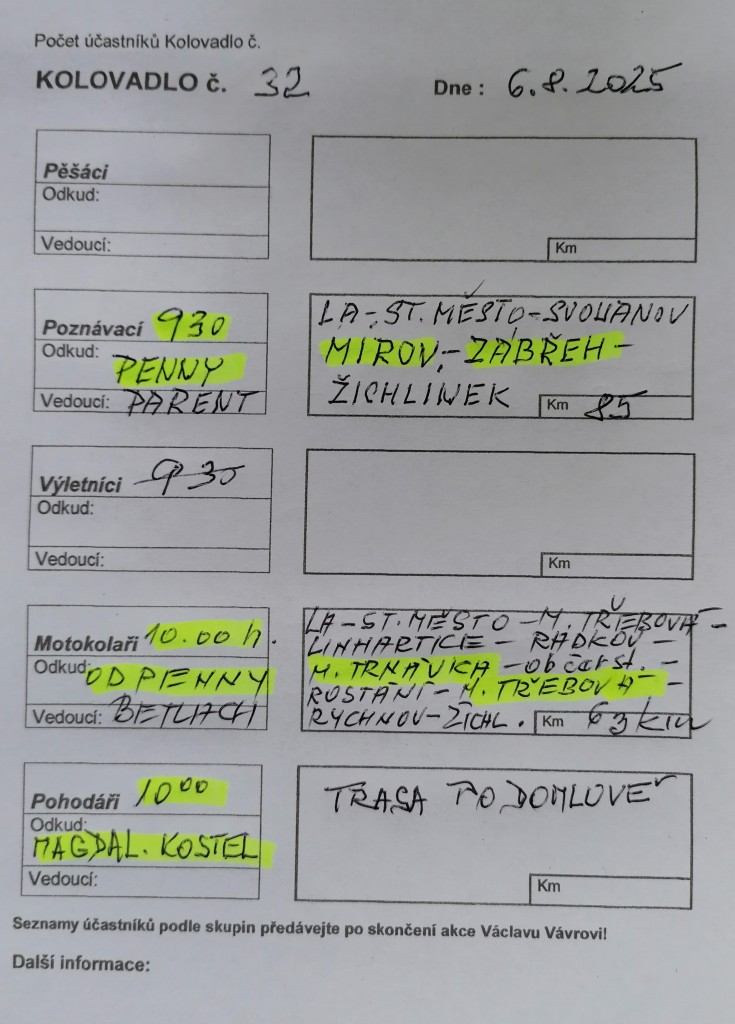 Počet účastníků Kolovadlo č.
KOLOVADLO č. 32 Dne : 6.8.2025
Pěšáci
Odkud:
Vedoucí:
Km
Poznávací 930
Odkud:
PENNY
Vedoucí: PARENT
LA-ST. MĚSTO-SVOJANOV
MIROV,- ZÁBŘEH-
ŽICHLINEK
Km 85
Výletníci 930
Odkud:
Vedoucí:
Km
Motokolaři 10.00 h.
Odkud: OD PENNY
Vedoucí: BETLACH
LA-ST. MĚSTO - M. TŘEBOVÁ -
LINHARTICE - RADKOV -
M. TRNÁVKA - občerst. -
ROSTÁNÍ - M. TŘEBOVÁ -
RYCHNOV - ŽICHL.
Km 63 km
Pohodáři 10 00
Odkud:
MAGDAL. KOSTEL
Vedoucí:
TRASA PO DOMLUVĚ
Km
Seznamy účastníků podle skupin předávejte po skončení akce Václavu Vávrovi!
Další informace: